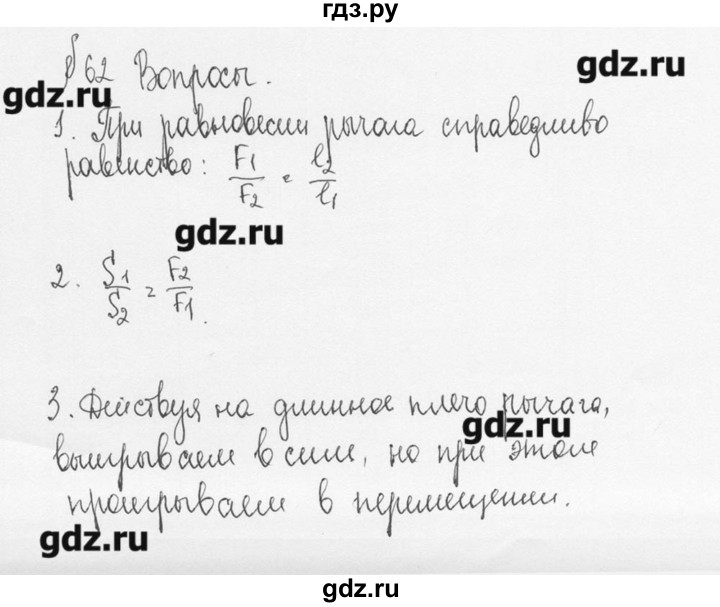 гдз.ру
§ 62 Вопросы.
gdz.ru
gdz.ru
1. При равновесии рычага справедливо
равенство: F1/F2 = l2/l1
gdz.ru
2. S1/S2 = F2/F1.
3. Действуя на длинное плечо рычага,
gdz.ru
выигрываем в силе, но при этом
проигрываем в перемещении.
gdz.ru
gdz.ru